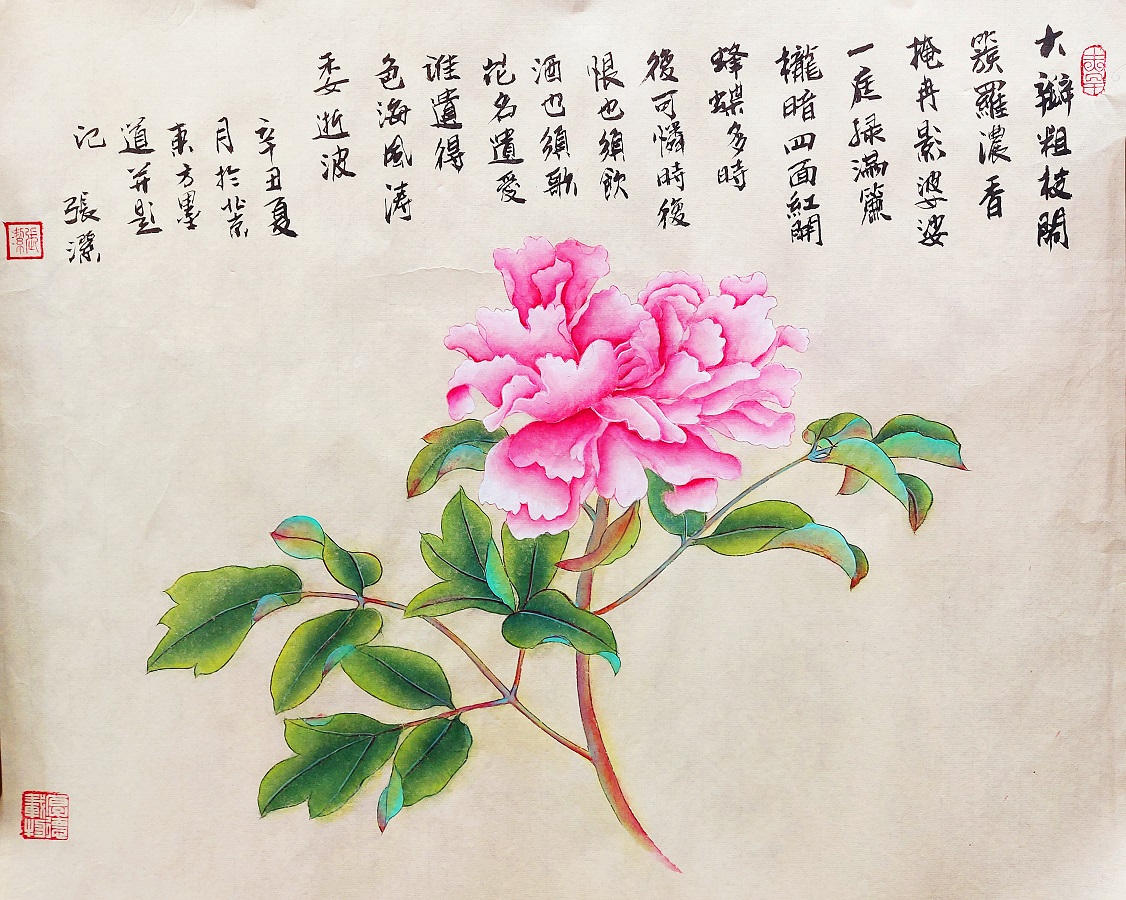 大瓣粗枝鬧
簇羅濃香
掩冉影婆娑
一庭綠漏簾
櫳暗四面紅開
蜂蝶多時
復可憐時復
恨也須飲
酒也須歌
花名遺愛
誰遺得
色海風濤
委逝波
辛丑夏
月於北京
東方墨
道并題
記 張潔
張潔